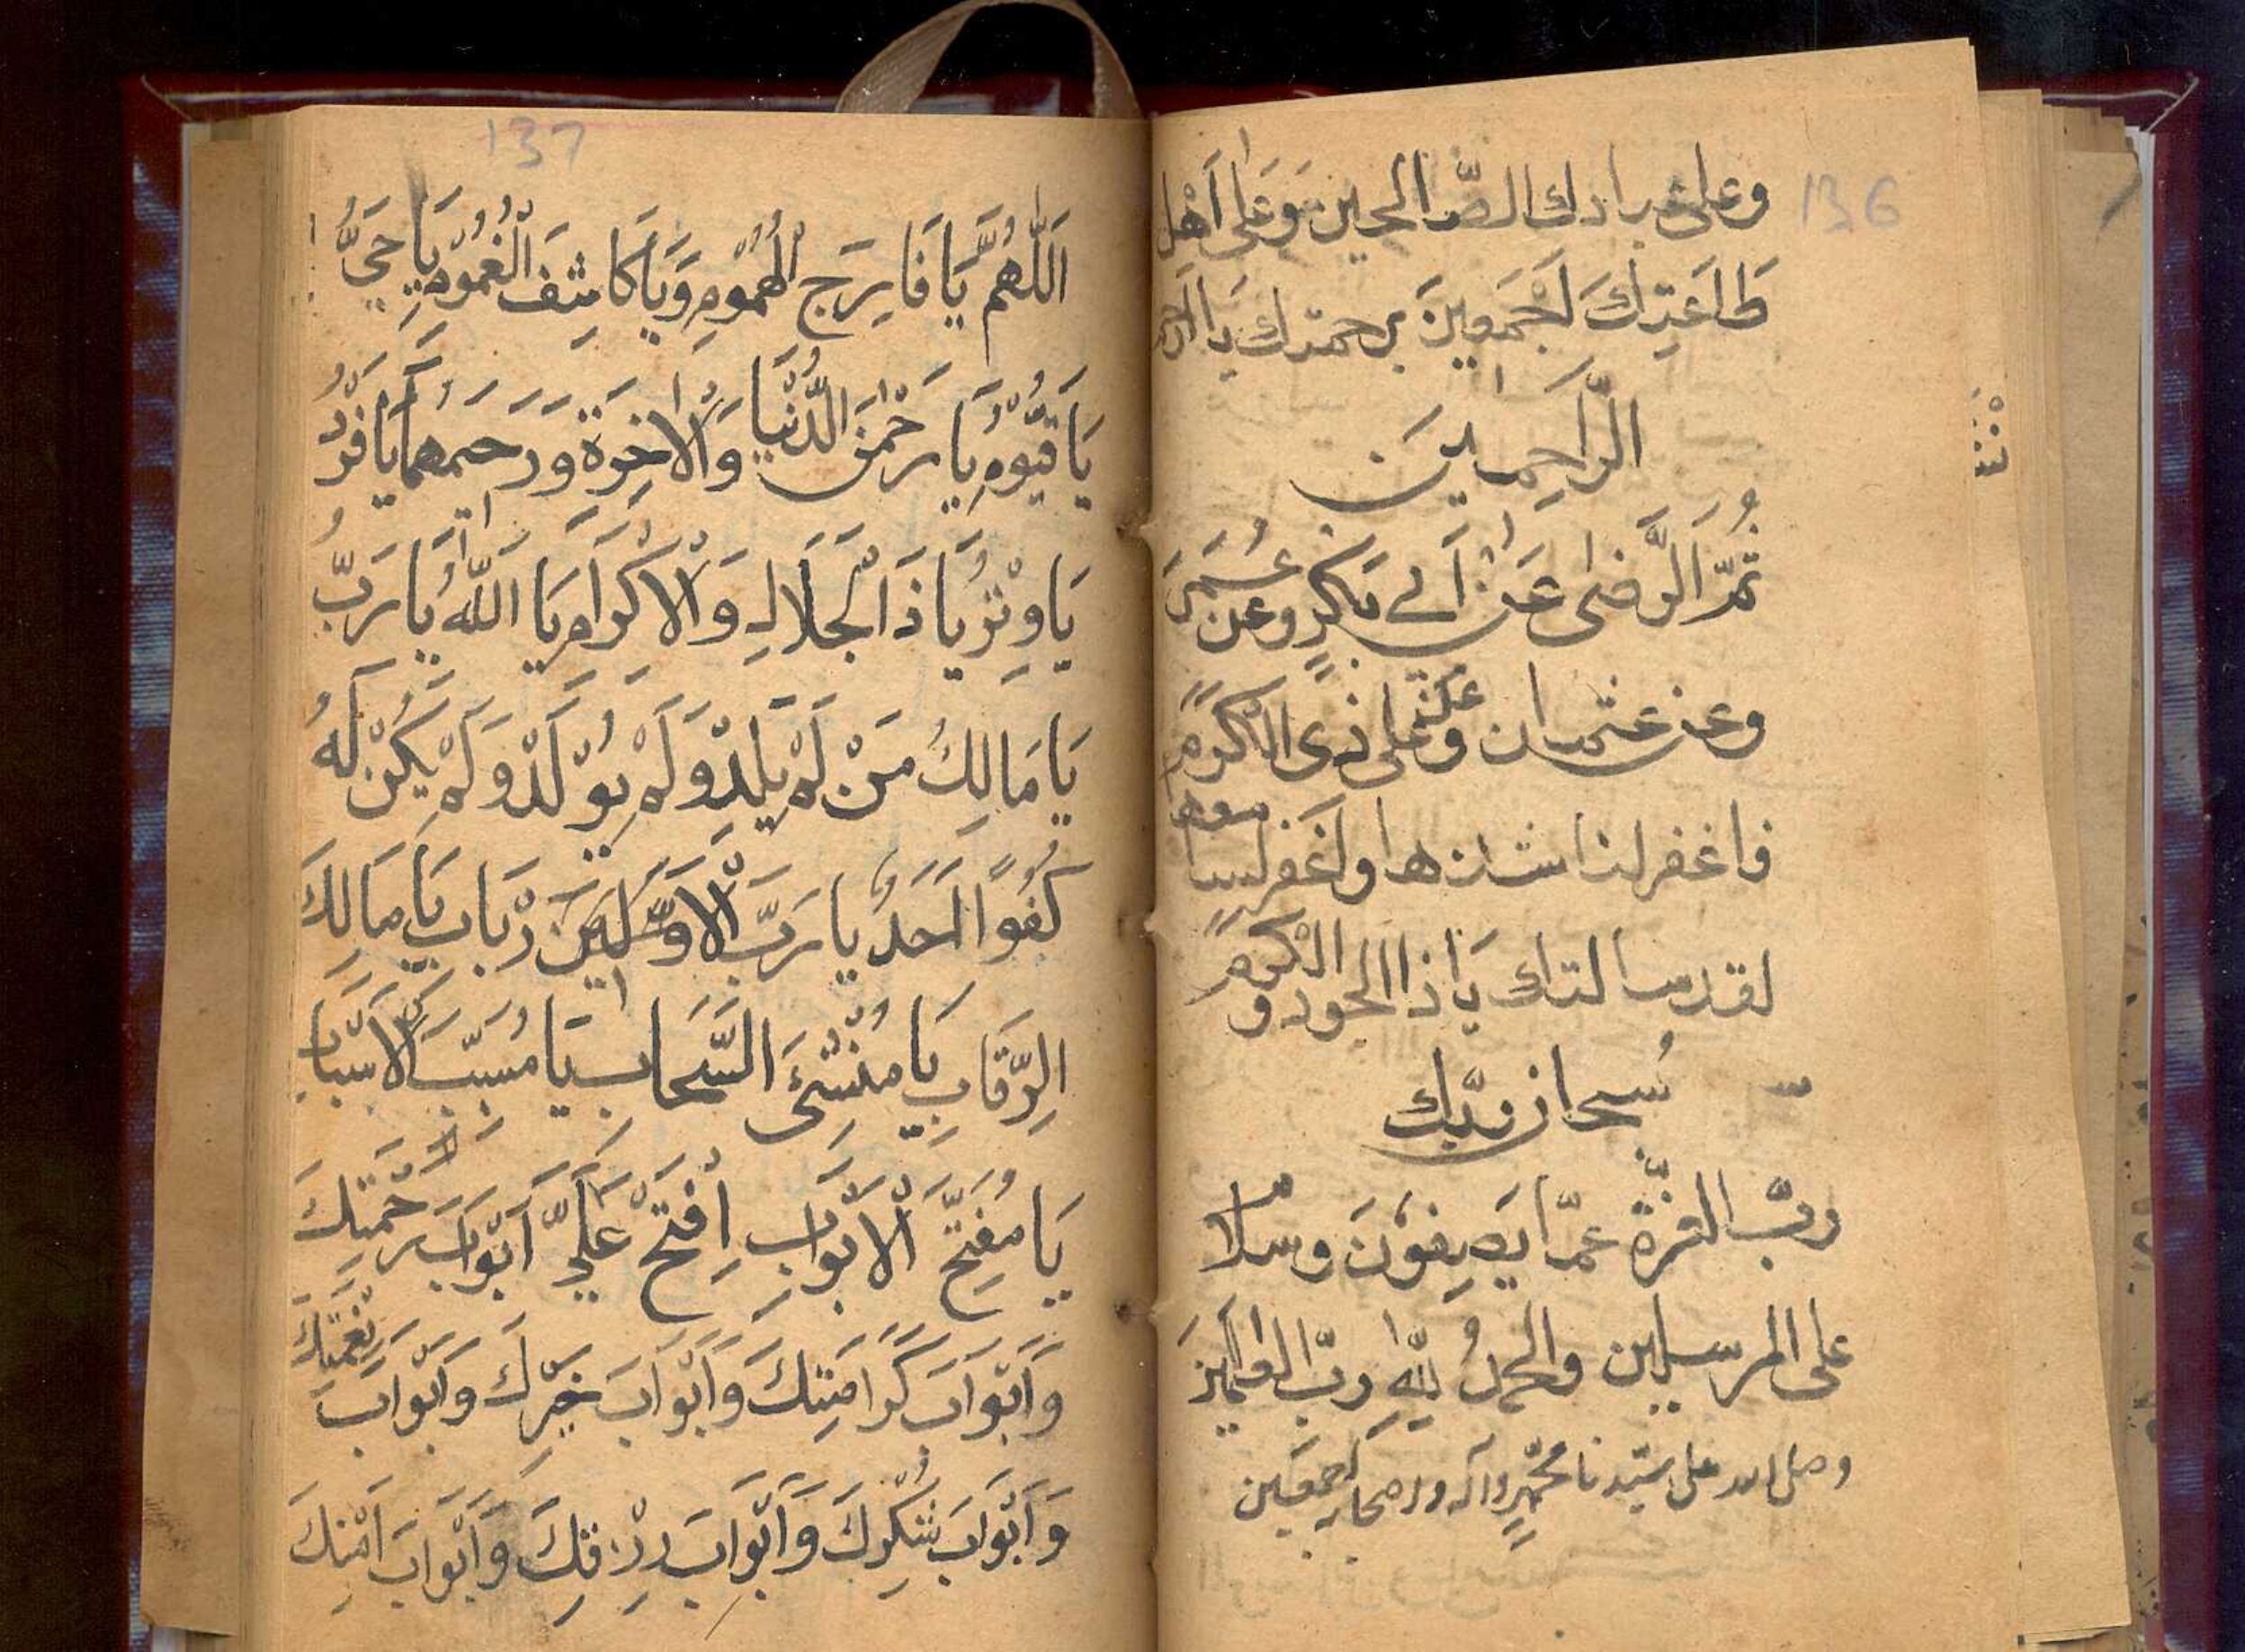 136
وعلى عبادك الصّالحين وَعَلى أَهْل
طَاعَتِكَ أَجْمَعِينَ برحمتك يا ارحم
الرَّاحِمِينَ
ثُمَّ الرَّضى عَنْ أَبي بَكرٍ وعن عُمَرَ
وعن عثمان وعَنْ على ذى الكَرَمِ
فاغفر لنا
لقد سالتاك يَا ذا الجود و الكرمِ
سُبحان ربّك
ربّ العزّة عمّا يَصِفُونَ وسلام
على المرسلين والحمدُ لِلّه ربّ العالمينَ
وصلى الله على سيّدنا محمّدٍ وآله واصحابه اجمعين
137
اَللّٰهُمَّ يَا فَارِجَ الْهُمُوْمِ وَيَا كَاشِفَ الْغُمُوْمِ يَا حَيُّ
يَا قَيُّوْمُ يَا رَحْمٰنَ الدُّنْيَا وَالْاٰخِرَةِ وَرَحِيمَهُمَا يَا فَرْدُ
يَا وِتْرُ يَا ذَا الْجَلَالِ وَالْاِكْرَامِ يَا اَللّٰهُ يَا رَبُّ
يَا مَالِكُ مَنْ لَمْ يَلِدْ وَلَمْ يُوْلَدْ وَلَمْ يَكُنْ لَهُ
كُفُوًا اَحَدٌ يَا رَبَّ الْاَوَّلِينَ يَا مَالِكَ
الرِّقَابِ يَا مُنْشِئَ السَّحَابِ يَا مُسَبِّبَ الْاَسْبَابِ
يَا مُفَتِّحَ الْاَبْوَابِ اِفْتَحْ عَلَيَّ اَبْوَابَ رَحْمَتِكَ
وَاَبْوَابَ كَرَامَتِكَ وَاَبْوَابَ خَيْرِكَ وَاَبْوَابَ نِعْمَتِكَ
وَاَبْوَابَ شُكْرِكَ وَاَبْوَابَ رِزْقِكَ وَاَبْوَابَ اَمْنِكَ